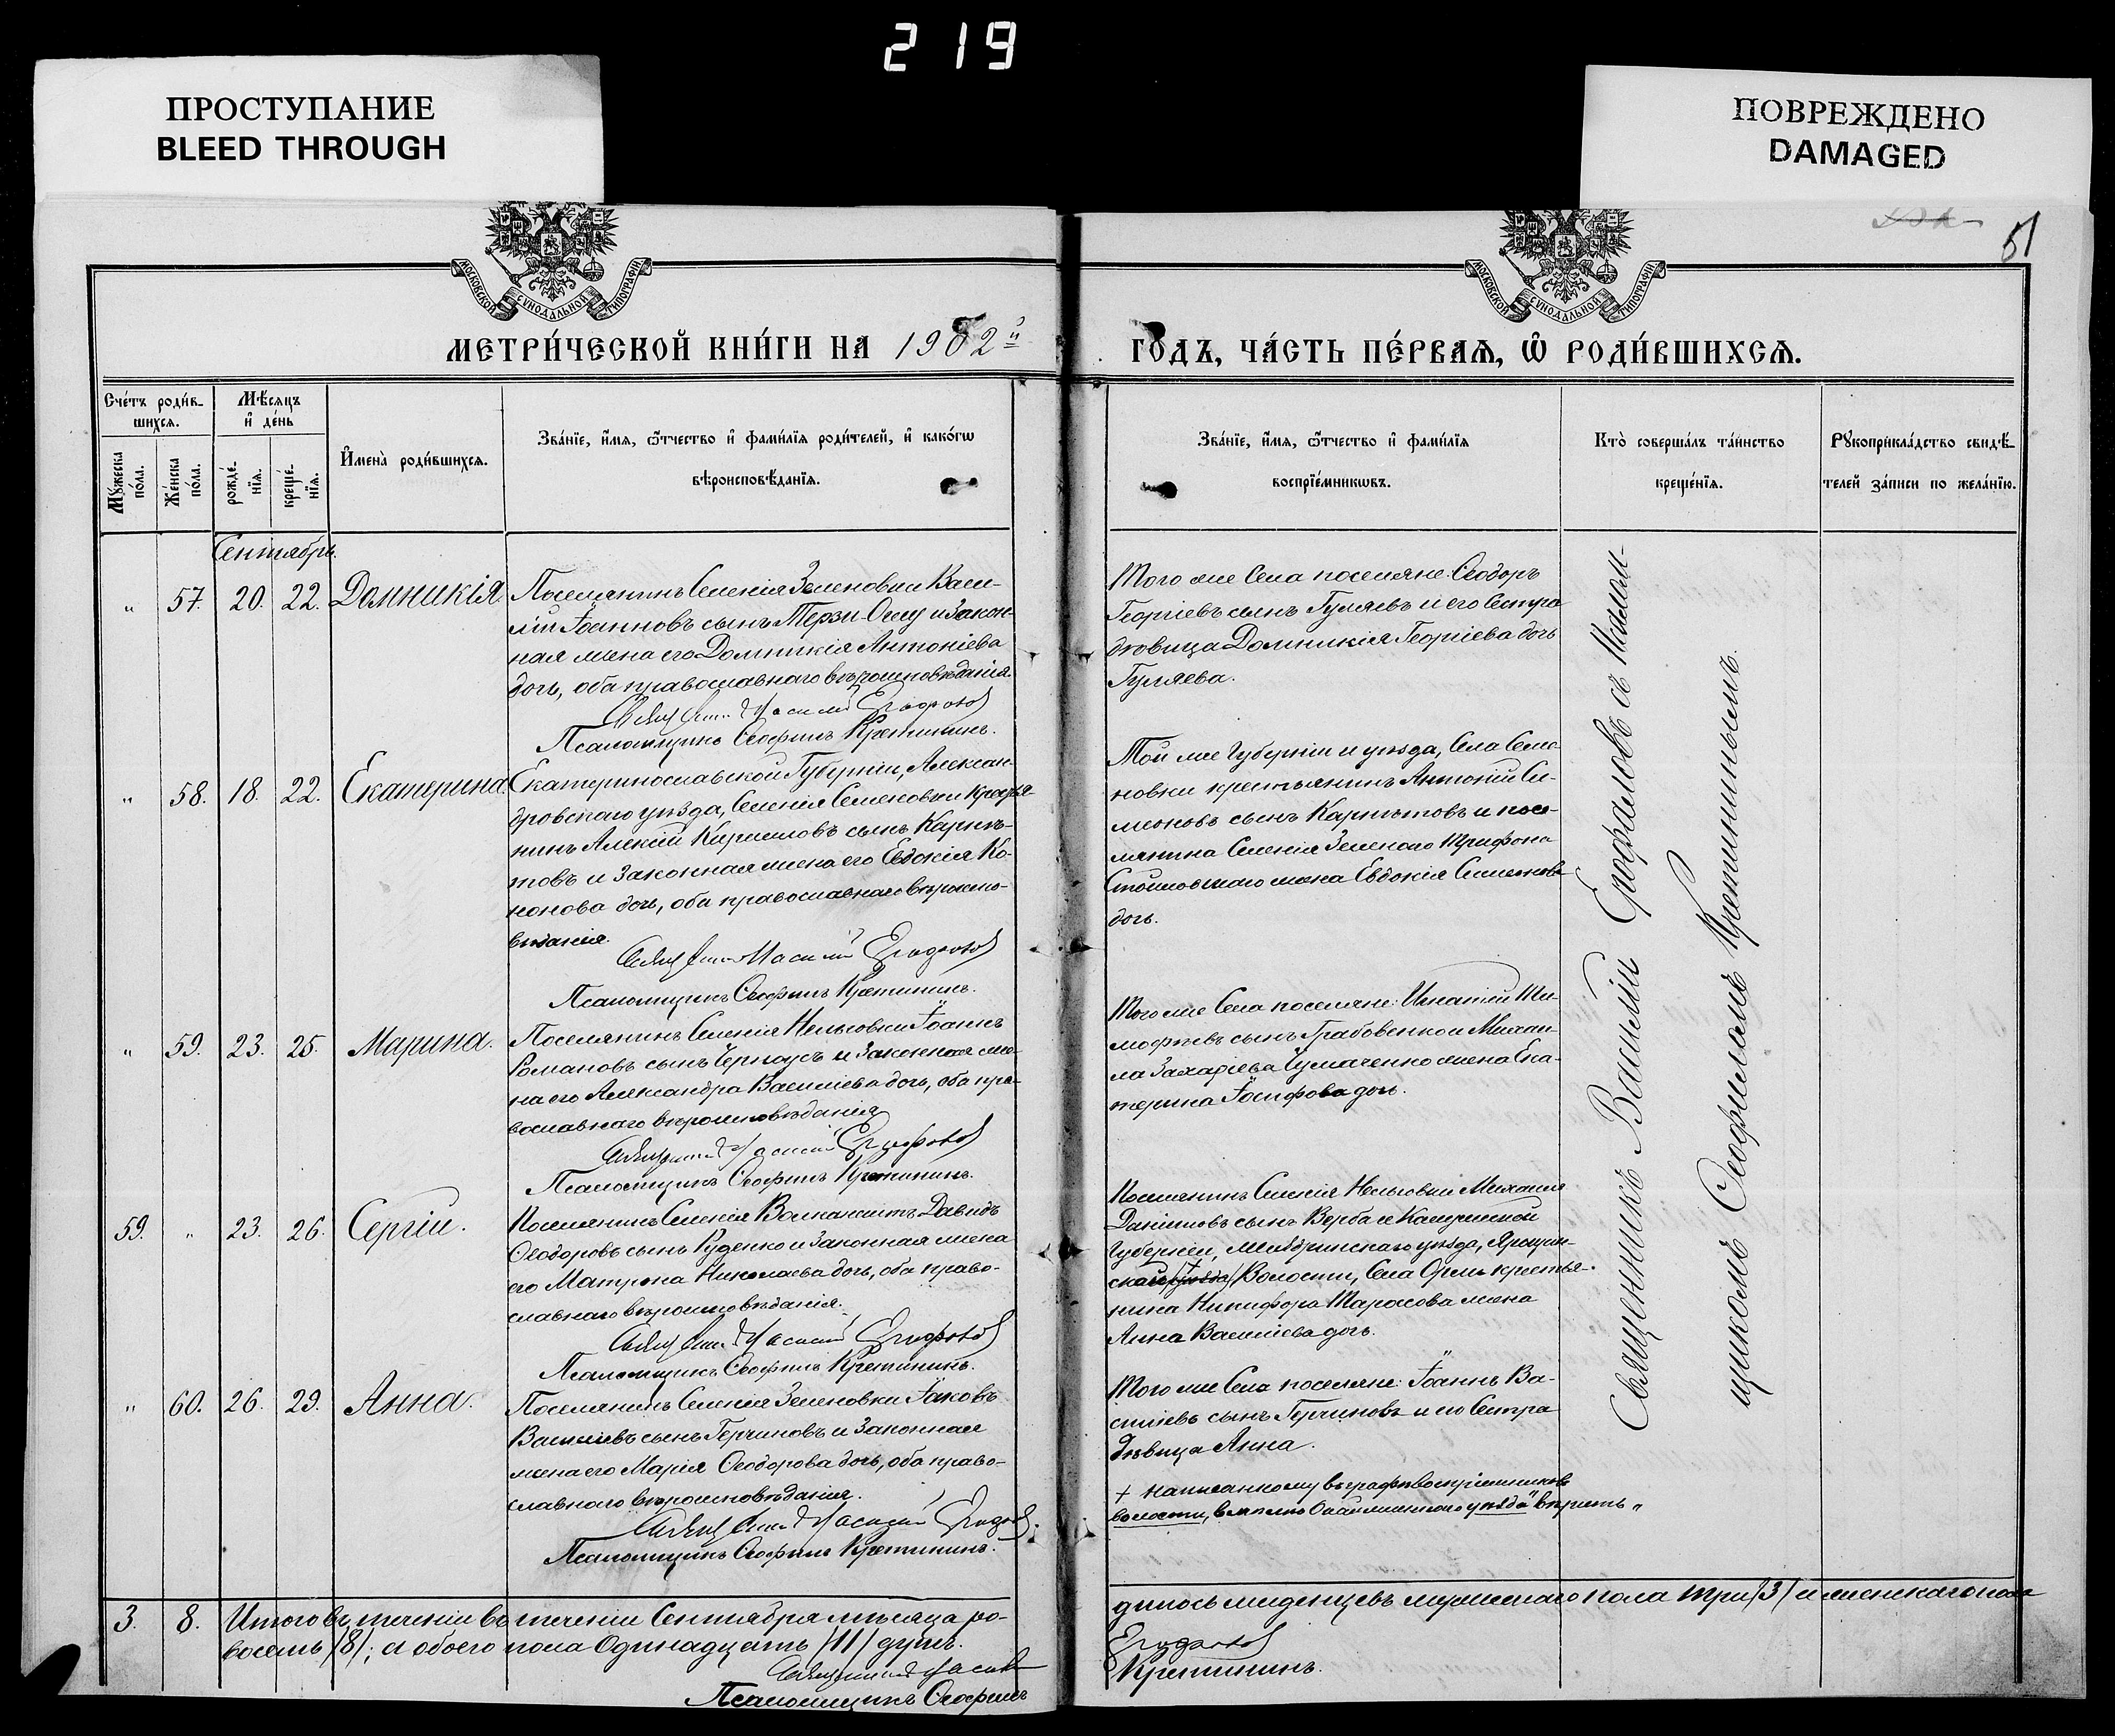 219
ПРОСТУПАНИЕ
BLEED THROUGH
ПОВРЕЖДЕНО
DAMAGED
51
МОСКОВСКОЙ СѴНОДАЛЬНОЙ ТИПОГРАФІИ
МОСКОВСКОЙ СѴНОДАЛЬНОЙ ТИПОГРАФІИ
МЕТРИ́ЧЕСКОЙ КНИ́ГИ НА 1902й
ГОДЪ, ЧА́СТЬ ПЕ́РВАЯ, Ѽ РОДИ́ВШИХСЯ.
Сче́тъ роди́в-
шихся.
Мѣ́сяцъ
и҆ де́нь
Мꙋ́жеска по́ла.
Же́нска по́ла.
рожде́-нїя.
креще́-нїя.
И҆мена̀ роди́вшихся.
Зва́нїе, и҆́мя, ѻ҆́тчество и҆ фами́лїя роди́телей, и҆ како́гѡ
вѣроисповѣ́данїя.
Зва́нїе, и҆́мя, ѻ҆́тчество и҆ фами́лїя
воспрїе́мникѡвъ.
Кто̀ соверша́лъ та́инство
креще́нїя.
Рꙋкоприкла́дство свидѣ́-
телей за́писи по жела́нїю.
Сентябрь.
" 57. 20. 22. Домникія.
Поселянинъ Селенія Зеленовки Васи-
лій Іоанновъ сынъ Терзи-Оглу и закон-
ная жена его Домникія Антоніева
дочь, оба православнаго вѣроисповѣданія.
Священникъ Василій Ерофаловъ
Псаломщикъ Ѳеофилъ Кретининъ.
Того же Села поселяне: Ѳеодоръ
Георгіевъ сынъ Гуляевъ и его Сестра
дѣвица Домникія Георгіева дочь
Гуляева.
" 58. 18. 22. Екатерина.
Екатеринославской Губерніи, Алексан-
дровскаго уѣзда, Селенія Семеновки крестья-
нинъ Алексій Кирилловъ сынъ Карпѣ-
товъ и законная жена его Евдокія Ко-
нонова дочь, оба православнаго вѣроиспо-
вѣданія.
Священникъ Василій Ерофаловъ
Псаломщикъ Ѳеофилъ Кретининъ.
Той же Губерніи и уѣзда, Села Семе-
новки крестьянинъ Антоній Си-
меоновъ сынъ Карпѣтовъ и посе-
лянина Селенія Зеленаго Трифона
жена Евдокія Симеонова
дочь.
" 59. 23. 25. Марина.
Поселянинъ Селенія Нельговки Іоаннъ
Романовъ сынъ Черноусъ и законная же-
на его Александра Васильева дочь, оба пра-
вославнаго вѣроисповѣданія
Священникъ Василій Ерофаловъ
Псаломщикъ Ѳеофилъ Кретининъ.
Того же Села поселяне: Игнатій Ти-
мофѣевъ сынъ Грабовенко и Михаи-
ла Захаріева Чумаченко жена Ека-
терина Іосифова дочь.
59. " 23. 26. Сергій.
Поселянинъ Селенія Волканештъ Давидъ
Ѳеодоровъ сынъ Руденко и законная жена
его Матрона Николаева дочь, оба право-
славнаго вѣроисповѣданія.
Священникъ Василій Ерофаловъ
Псаломщикъ Ѳеофилъ Кретининъ.
Поселянинъ Селенія Нельговки Михаилъ
Даніиловъ сынъ Верба и Калужской
Губерніи, Жиздринскаго уѣзда,
Волости, Села крестья-
нина Никифора Тарасова жена
Анна Васильева дочь.
" 60. 26. 29. Анна.
Поселянинъ Селенія Зеленовки Іаковъ
Васильевъ сынъ Герчиновъ и законная
жена его Марія Ѳеодорова дочь, оба право-
славнаго вѣроисповѣданія.
Священникъ Василій Ерофаловъ
Псаломщикъ Ѳеофилъ Кретининъ.
Того же Села поселяне: Іоаннъ Ва-
силіевъ сынъ Герчиновъ и его Сестра
дѣвица Анна.
+ написанному въ графѣ воспріемниковъ
волости, вмѣсто уѣзда" вѣрить "
Священникъ Василій Ерофаловъ съ Псалом-
щикомъ Ѳеофиломъ Кретининымъ.
3. 8. Итого въ теченіи Сентября мѣсяца ро-
дилось младенцевъ мужескаго пола три /3/ и женскаго пола
восемь /8/; а обоего пола одинадцать /11/ душъ.
Священникъ Василій Ерофаловъ
Псаломщикъ Ѳеофилъ Кретининъ.